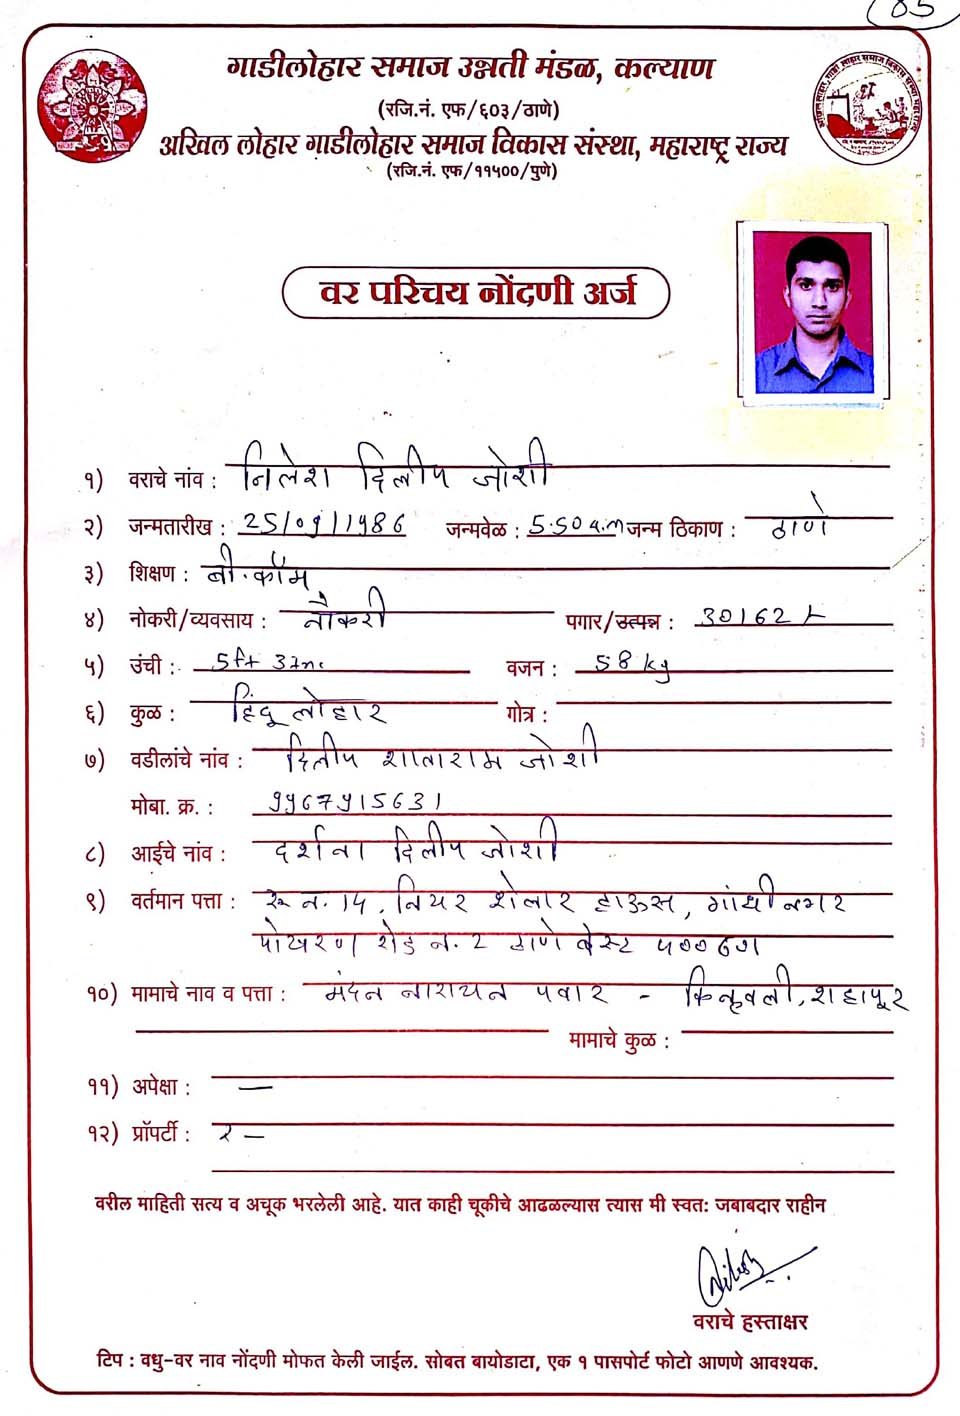 (85)
गाडीलोहार समाज उन्नती मंडळ, कल्याण
(रजि.नं. एफ/६०३/ठाणे)
अखिल लोहार गाडीलोहार समाज विकास संस्था, महाराष्ट्र राज्य
(रजि.नं. एफ/११५००/पुणे)
वर परिचय नोंदणी अर्ज
१) वराचे नांव : निलेश दिलीप जोशी
२) जन्मतारीख : 25/09/1986 जन्मवेळ : 5.50 a.m जन्म ठिकाण : ठाणे
३) शिक्षण : बी.कॉम
४) नोकरी/व्यवसाय : नौकरी पगार/उत्पन्न : 30162
५) उंची : 5ft 3in. वजन : 58 kg
६) कुळ : हिंदू लोहार गोत्र :
७) वडीलांचे नांव : दिलीप शांताराम जोशी
मोबा. क्र. : 9967915631
८) आईचे नांव : दर्शना दिलीप जोशी
९) वर्तमान पत्ता : रू न. 14, नियर शेलार हाऊस, गांधी नगर
पोखरण रोड न. 2 ठाणे वेस्ट
१०) मामाचे नाव व पत्ता : नारायन पवार - किन्हवली, शहापूर
मामाचे कुळ :
११) अपेक्षा : —
१२) प्रॉपर्टी : —
वरील माहिती सत्य व अचूक भरलेली आहे. यात काही चूकीचे आढळल्यास त्यास मी स्वत: जबाबदार राहीन
वराचे हस्ताक्षर
टिप : वधु-वर नाव नोंदणी मोफत केली जाईल. सोबत बायोडाटा, एक १ पासपोर्ट फोटो आणणे आवश्यक.